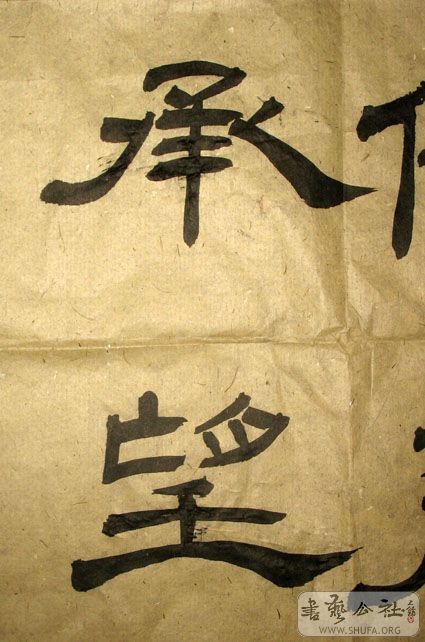 承望
書藝公社
WWW.SHUFA.ORG